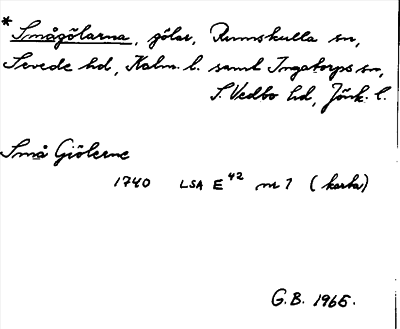 * Smågölarna, gölar, Rumskulla sn,
Sevede hd, Kalm. l. samt Ingatorps sn,
S. Vedbo hd, Jönk. l.
Små Giölerne
1740 LSA E42 nr 1 (karta)
G.B. 1965.